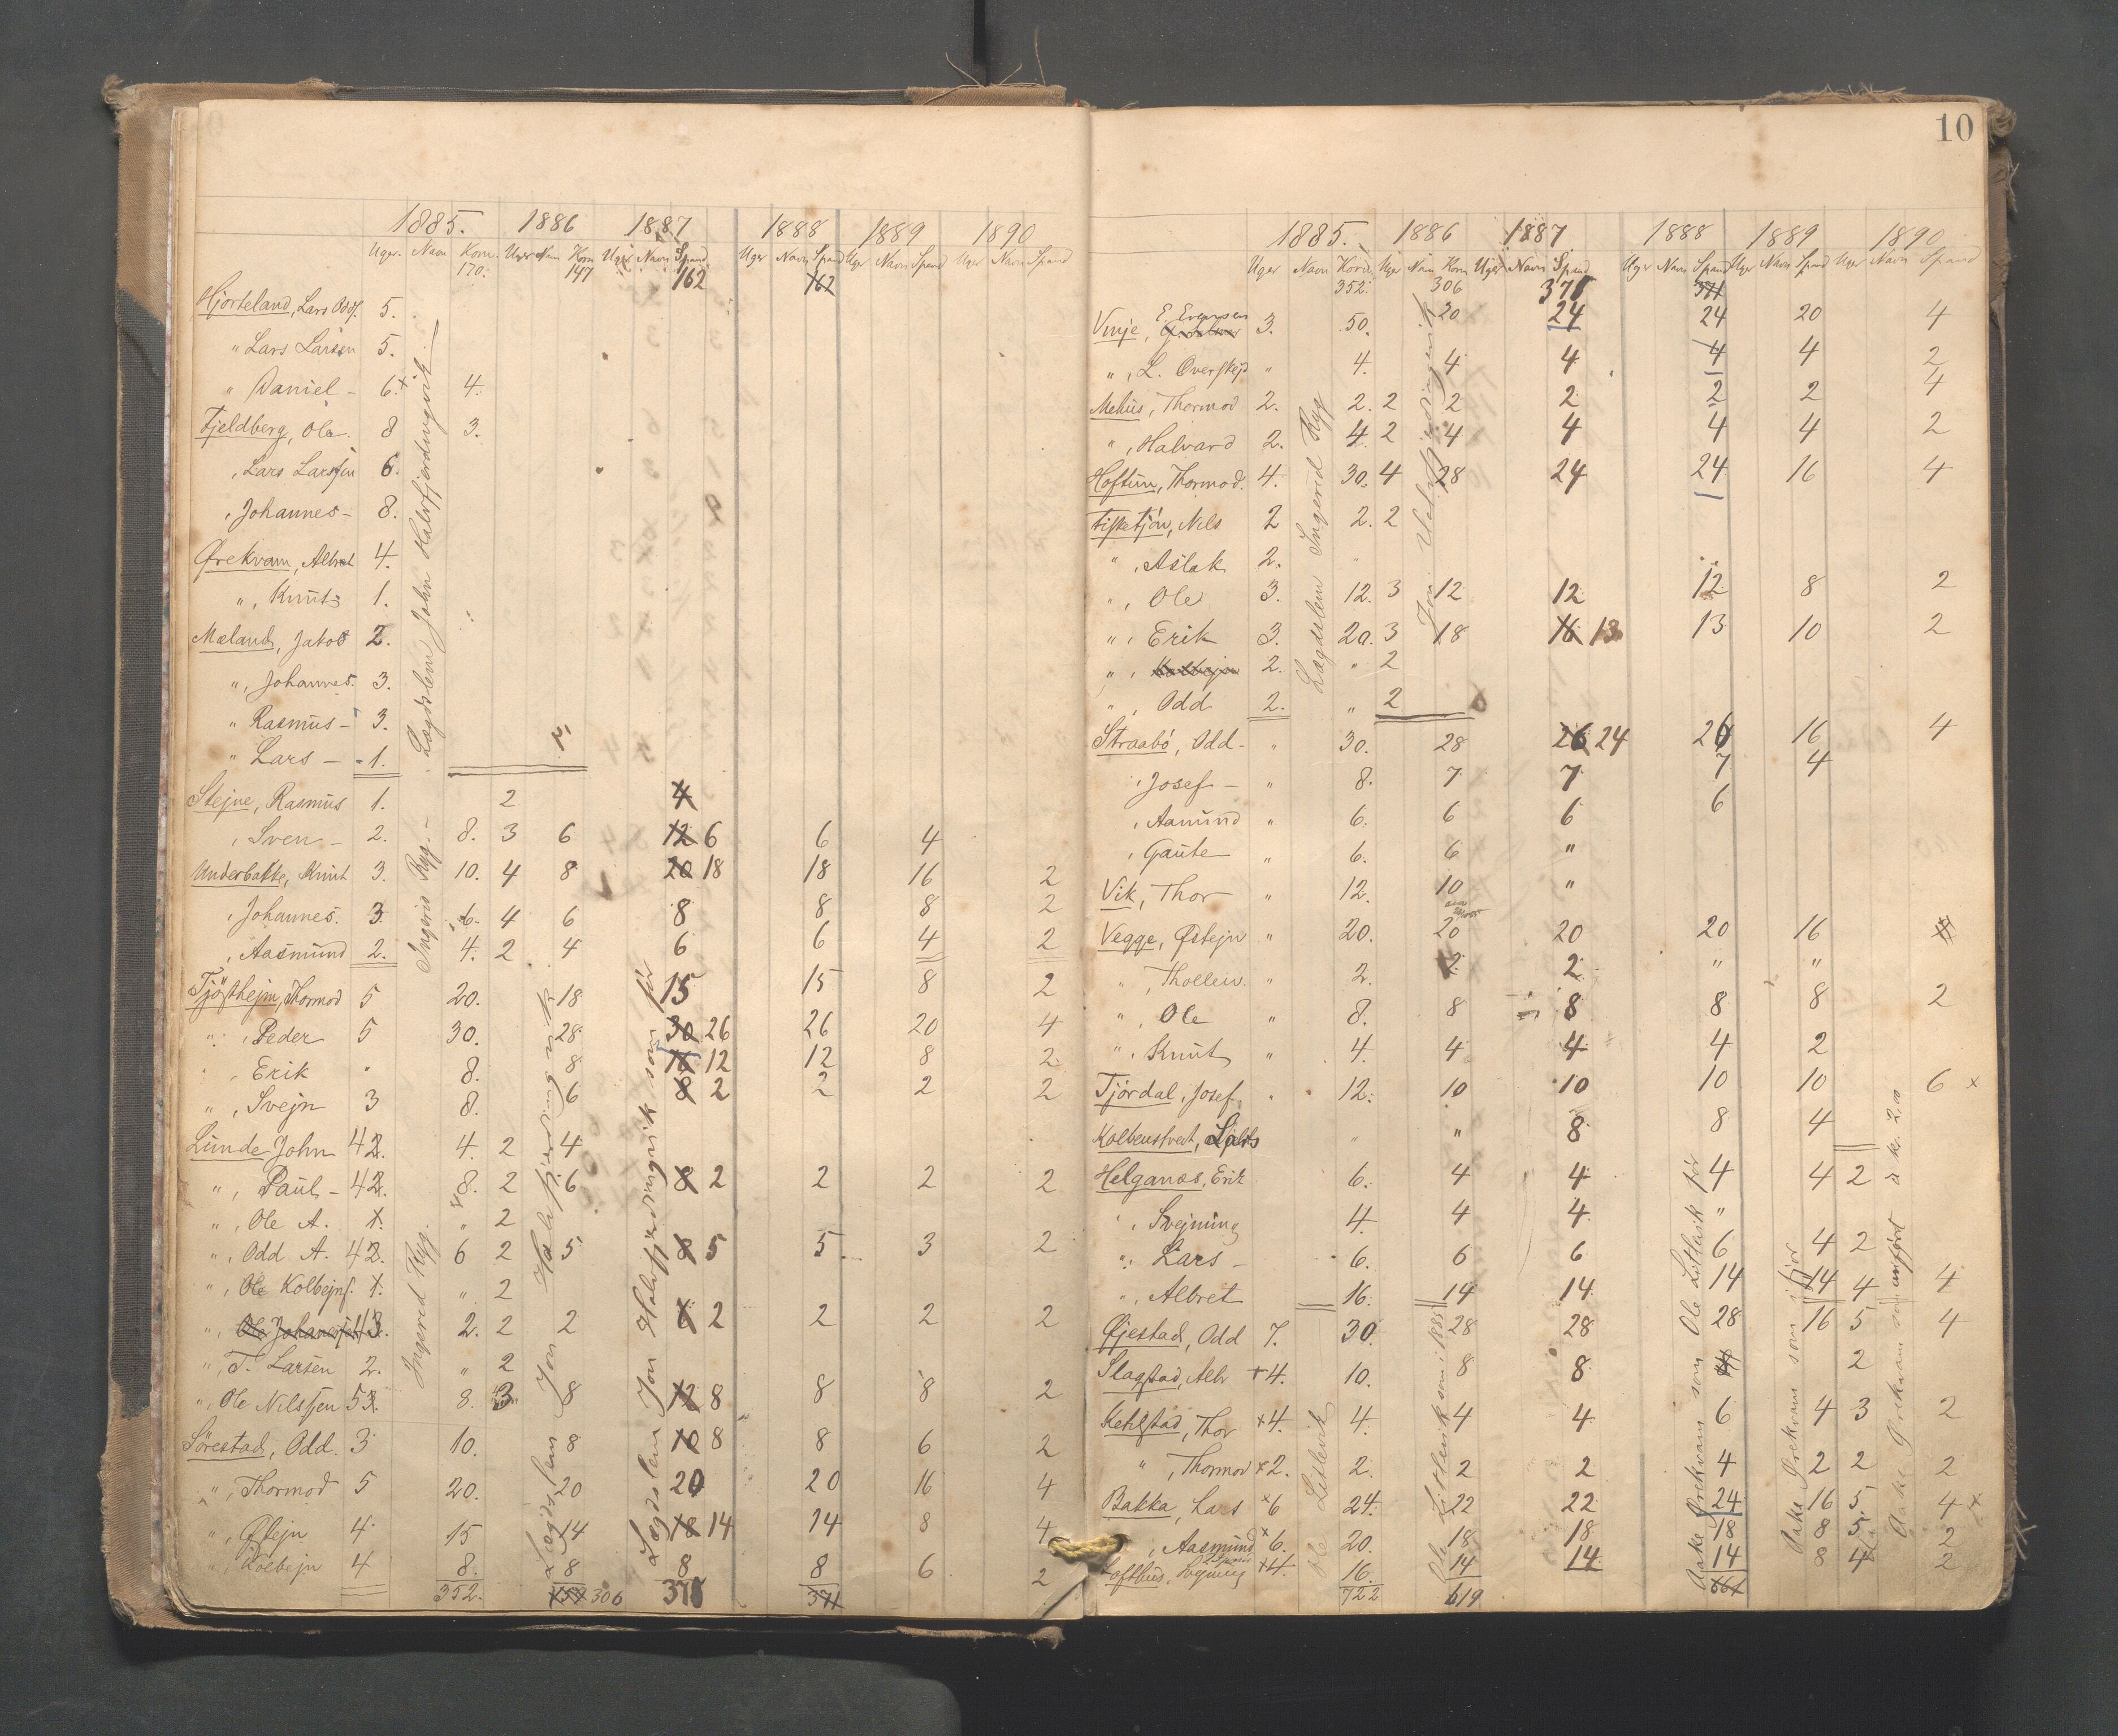 1885. 1886 1887 1888 1889 1890
Uger. Navn Korn. Uger Navn Korn Uger Navn Spand Uger Navn Spand Uger Navn Spand Uger Navn Spand
170. 147 162 162
Hjorteland, Lars 5.
" Lars Larsen 5.
" Daniel - 6 4.
Fjeldberg, Ole. 8 3.
, Lars Larssen 6.
, Johannes - 8.
Ørekvam, Albret 4.
", Knut 1.
Mæland, Jakob 2.
", Johannes. 3.
" Rasmus - 3.
" Lars - 1.
Lægdslem John Halvfjerdingvik
Stejne, Rasmus 1. 2 4
, Sven - 2. 8. 3 6 12 6 6 4
Underbakke, Knut 3. 10. 4 8 20 18 18 16 2
, Johannes. 3 6. 4 6 8 8 8 2
, Aasmund 2. 4. 2 4 6 6 4 2
Ingerid Ryg.
Tjøsthejm, Thormod 5 20. 18 15 15 8 2
", Peder 5 30. 28 30 26 26 20 4
", Erik " 8. 8 16 12 12 8 2
", Svejn 3 8. 6 8 2 2 2 2
Lunde John 42. 4. 2 4
", Paul - 42. 8. 2 6 8 2 2 2 2
", Ole A. 1. " 2
", Odd A. 42. 6 2 5 8 5 5 3 2
", Ole Kolbejns. 1. " 2
", Ole Johannessen 43. 2. 2 2 6 2 2 2 2
", T. Larsen 2. " 2
", Ole Nilssen 53. 8. 3 8 12 8 8 8 2
Ingerid Ryg.
Sørestad, Odd. 3 10. 8 10 8 8 6 2
", Thormod 5 20. 20 20 20 16 4
", Østejn 4 15 14 18 14 14 8 4
", Kolbejn 4 8. 8 8 8 6 2
Lægdslem Jon Halvfjerdingvik
Lægdslem Jon Halvfjerdingvik som før
352. 306 371 371
10
1885. 1886 1887 1888 1889 1890
Uger Navn Korn Uger Navn Korn Uger Navn Spand Uger Navn Spand Uger Navn Spand Uger Navn Spand
352. 306 371 371
E. Evensen
Vinje, 3. 50. 20 24 24 20 4
", L. Overskejd " 4. 4 4 4 4 2
Mehus, Thormod 2. 2. 2 2 2 2 2 4
", Halvard 2. 4 2 4 4 4 4 2
Hoftun, Thormod. 4. 30. 4 28 24 24 16 4
Fisketjøn, Nils 2 2. 2
", Aslak 2.
", Ole 3. 12. 3 12 12 12 8 2
", Erik 3. 20. 3 18 16 13 13 10 2
", Kolbejn 2. " 2
", Odd 2. " 2
Lægdslem Ingerid Ryg
Jon Halvfjerdingvik
Straabø, Odd - " 30. 28 26 24 26 16 4
, Josef - " 8. 7 7 7 4
, Aamund " 6. 6 6 6
, Gaute " 6. 6 "
Vik, Thor " 12. 10 "
Vegge, Østejn " 20. 20 20 20 16 4
", Thollew. " 2. 2 2 " "
", Ole " 8. 8 8 8 8 2
", Knut " 4. 4 4 4 2
Tjørdal, Josef. " 12. 10 10 10 10 6 x
Kolbenstvedt, " " 8 8 4
Helganes, Erik 6. 4 4 4 4 2
", Svejnung 4. 4 4 "
", Lars - 6. 6 6 6 4 2
", Albret 16. 14 14 14 14 4 4
Øjestad, Odd 7. 30. 28 28 28 16 5 4
Slagstad, Alb. +4. 10. 8 8 4 2
Kehlstad, Thor x4. 4. 4 4 6 4 3 2
", Thormod x2. 2. 2 2 4 2 2 2
Bakka, Lars x6 24. 22 22 24 16 5 4 x
, Aasmund x6. 20. 18 18 18 8 5 2
Lofthus, Svejnung x4. 16. 14 14 14 8 4 2
722 619 661
Ole Litlevik
Ole Litlevik som i 1885
Aake Ørekvam som Ole Litlevik før
Aake Ørekvam som i før
Aake Ørekvam som anført à kr. 2,00